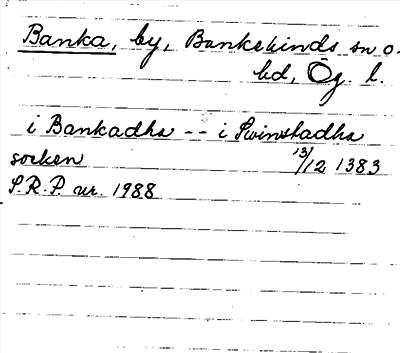 Banka, by, Bankekinds sn o.
hd, Ög. l.
i Bankadha -- i Swinstadha
socken 13/12 1383
S.R.P. nr. 1988